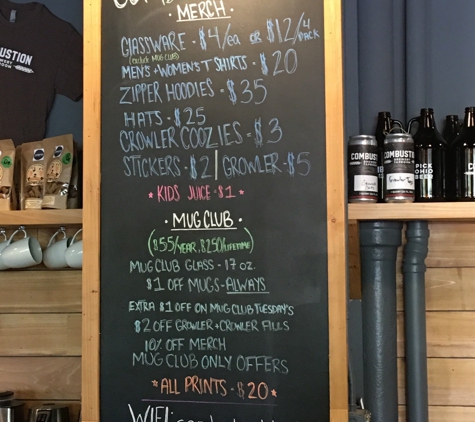 · MERCH ·
GLASSWARE - $4/ea OR $12/4 PACK
MEN'S + WOMEN'S T SHIRTS - $20
ZIPPER HOODIES - $35
HATS - $25
CROWLER COOZIES - $3
STICKERS - $2 | GROWLER - $5
* KIDS JUICE - $1 *
· MUG CLUB ·
($55/YEAR, $250/LIFETIME)
MUG CLUB GLASS - 17 OZ.
$1 OFF MUGS - ALWAYS
EXTRA $1 OFF ON MUG CLUB TUESDAY'S
$2 OFF GROWLER + CROWLER FILLS
10% OFF MERCH
MUG CLUB ONLY OFFERS
* ALL PRINTS - $20 *
WIFI:
COMBUST
PICK
OHIO
BEER